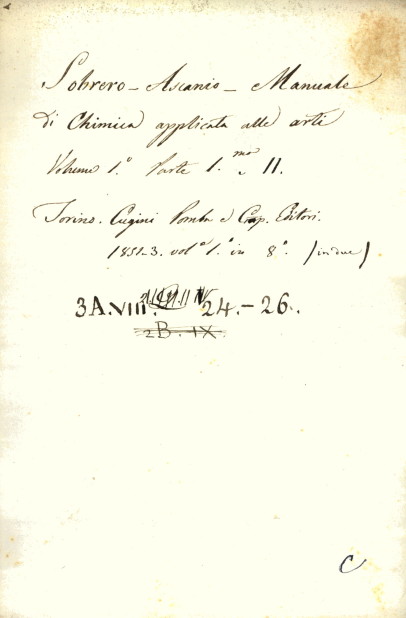 Sobrero - Ascanio - Manuale
di Chimica applicata alle arti
Volume 1.º Parte 1.ma e II.
Torino. Cugini Pomba e Cop. Editori.
1851-3. vol.e 1.º in 8.º (in due)
3A.VIII. 24.-26.
2B.IX.
C